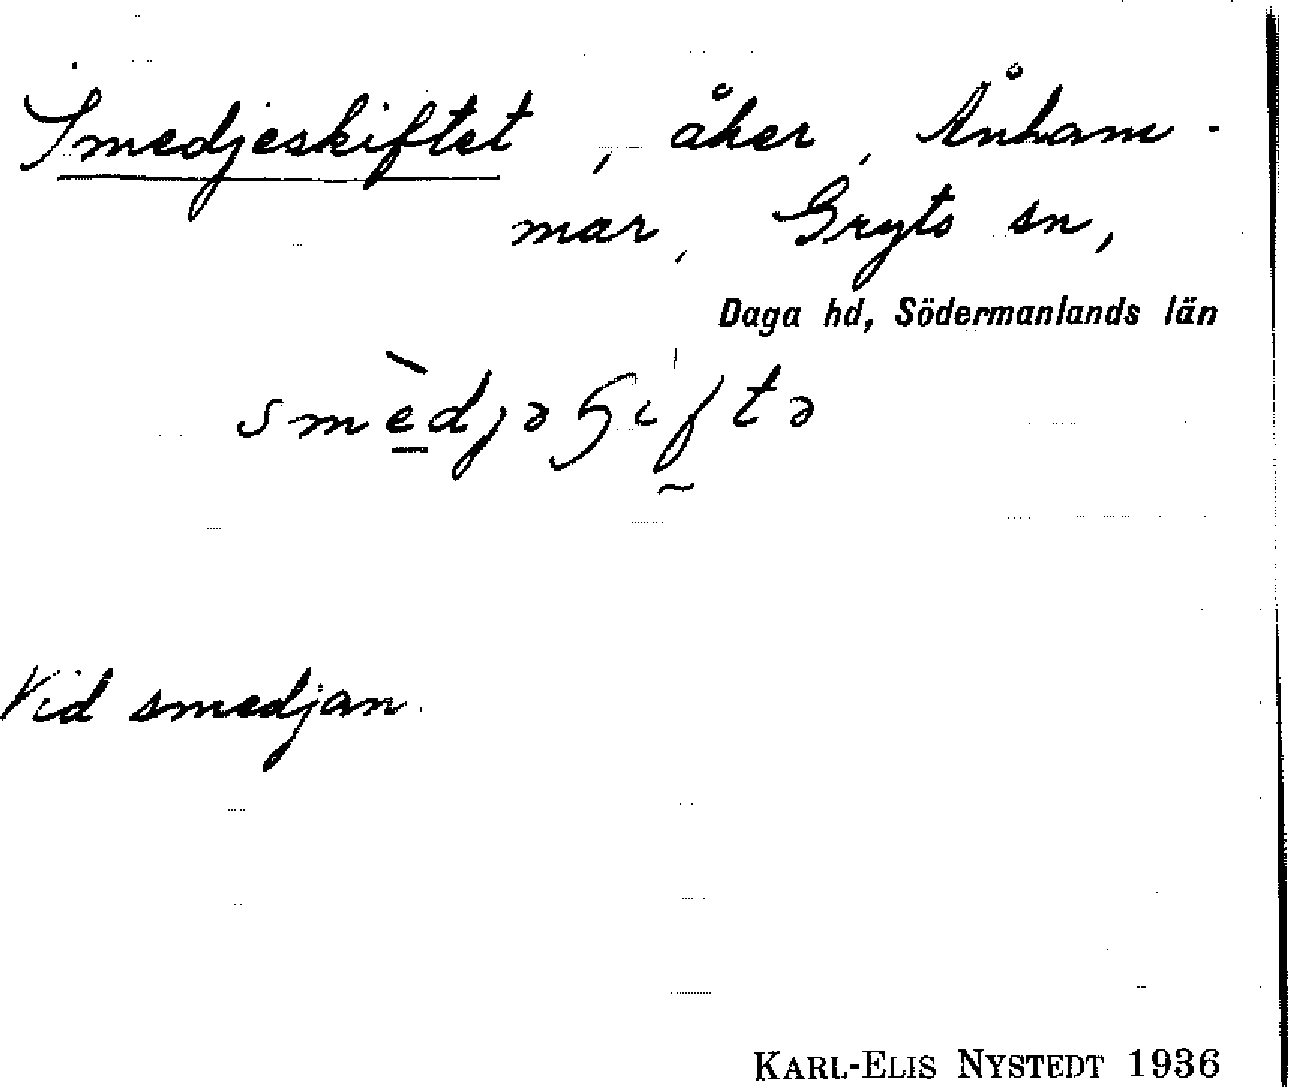 Smedjeskiftet, åker, Ånham-
mar, Gryts sn,
Daga hd, Södermanlands län
smèdjəʃiftə
Vid smedjan.
KARL-ELIS NYSTEDT 1936